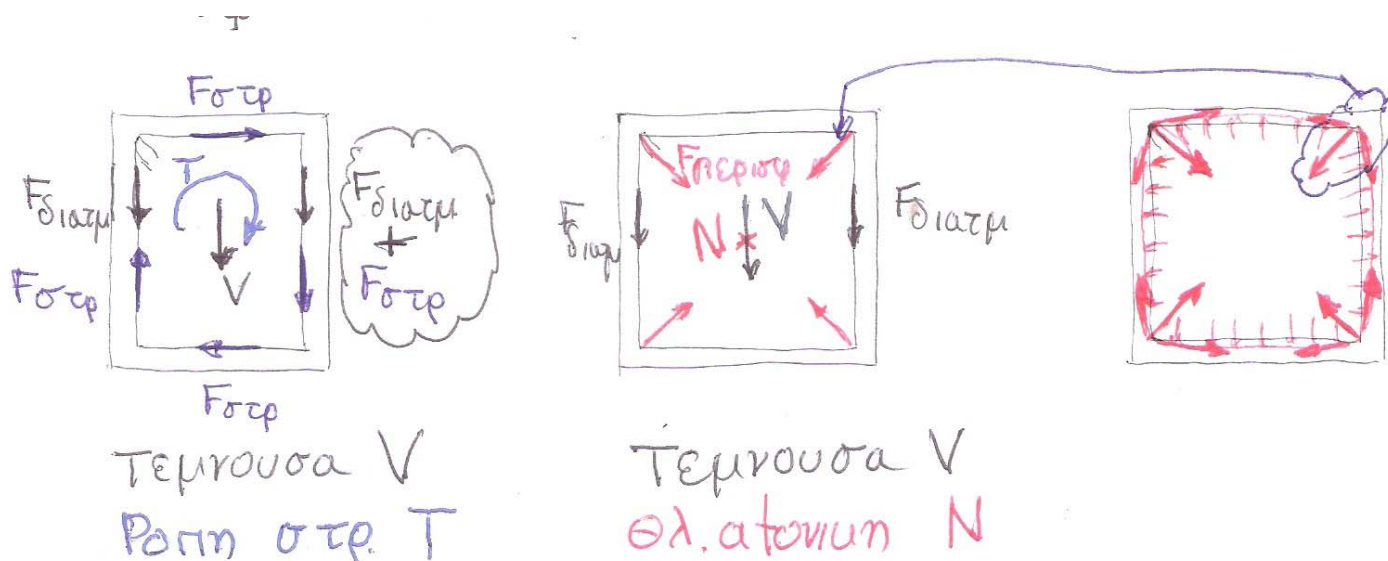 Fστρ
T
Fδιατμ
Fδιατμ
+
Fστρ
V
Fστρ
Fστρ
Τεμνουσα V
Ροπη στρ. T
Fπερισφ
Fδιαμ
N
V
Fδιατμ
Τεμνουσα V
Θλ. αξονικη N